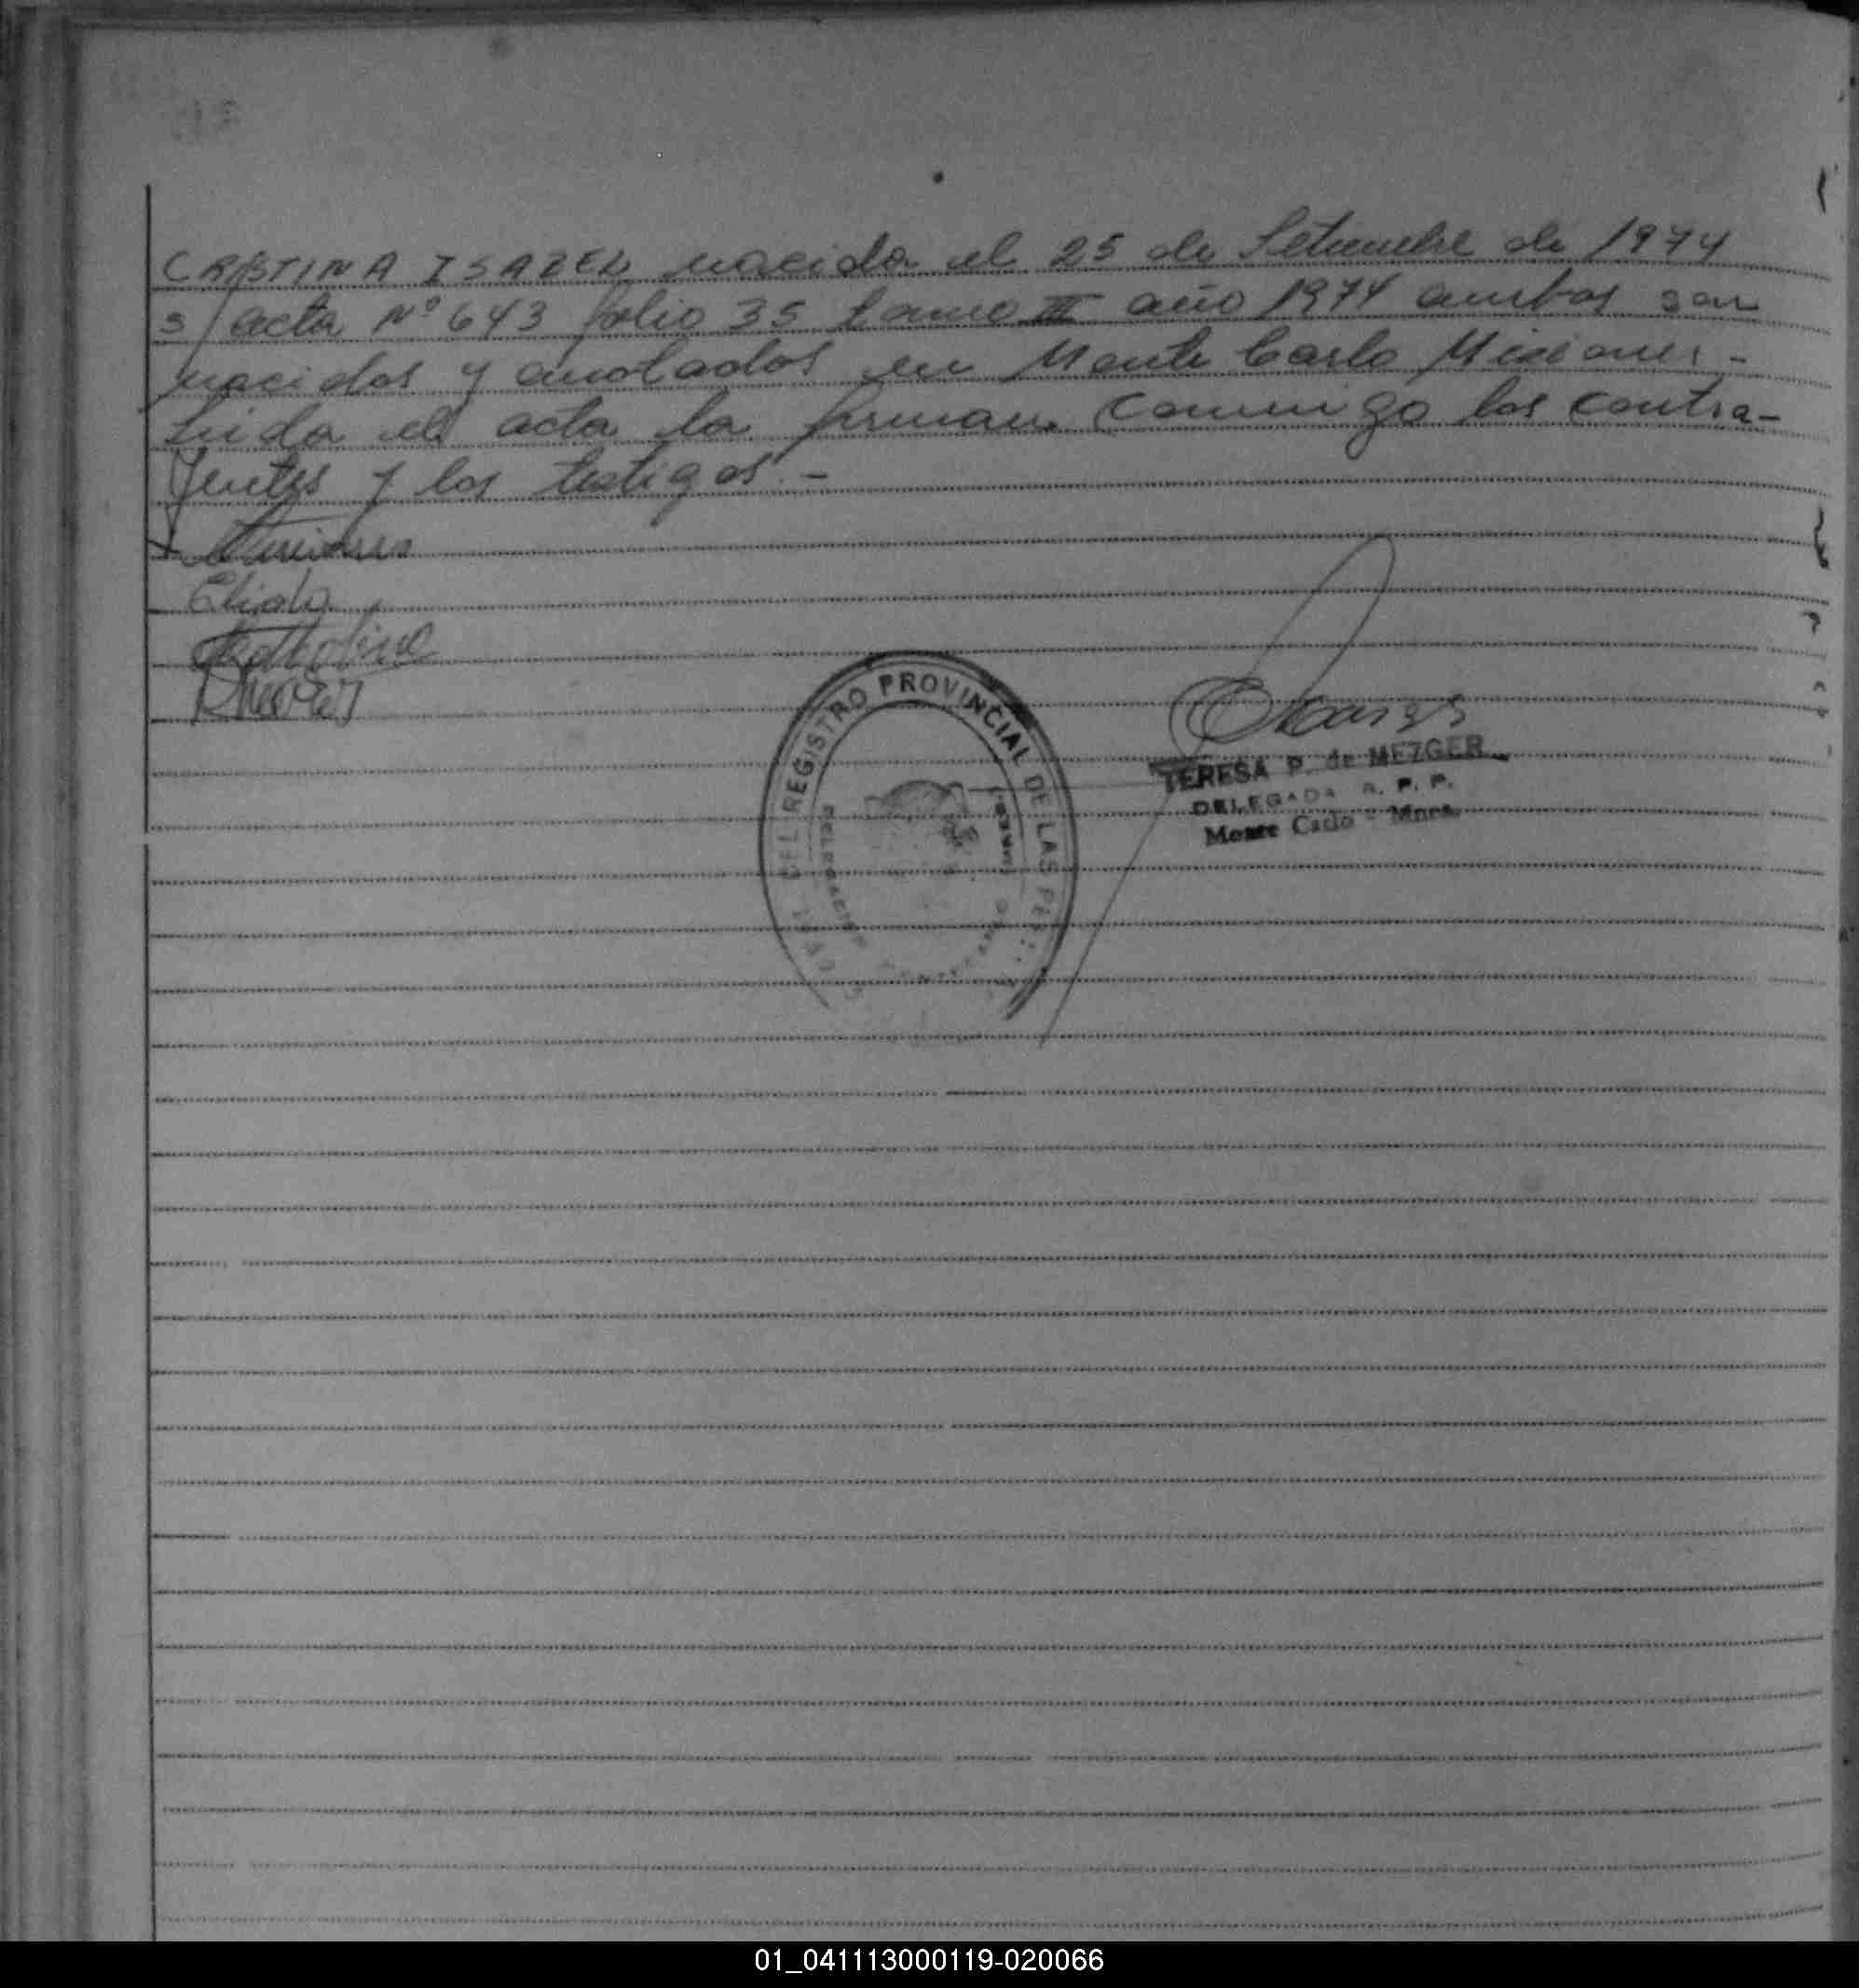 CRISTINA ISABEL nacida el 25 de Setiembre de 1974
s/acta Nº 643 folio 35 tomo III año 1974 ambos son
nacidos y anotados en Monte Carlo Misiones.-
Leida el acta la firman conmigo los contra-
yentes y los testigos.-
Elida
DEL REGISTRO PROVINCIAL DE LAS PER
TERESA P. de MEZGER
DELEGADA R. P. P.
Monte Carlo - Mnes.
01_041113000119-020066